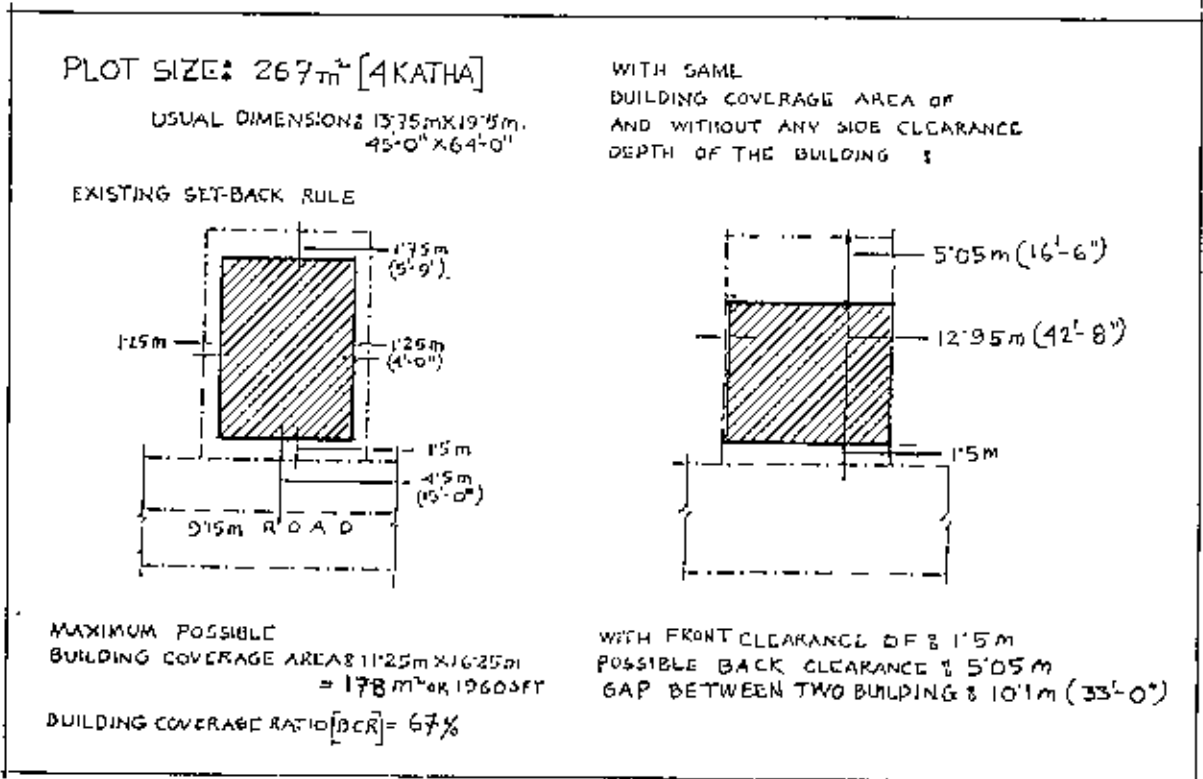 PLOT SIZE: 267m² [4 KATHA]
USUAL DIMENSION: 13'75m X 19'5m.
45'-0" X 64'-0"
EXISTING SET-BACK RULE
1'75m
(5'-9")
1'25m
1'25m
(4'-0")
1'5m
4'5m
(15'-0")
9'15m ROAD
MAXIMUM POSSIBLE
BUILDING COVERAGE AREA: 11'25m X 16'25m
= 178 m² OR 1960 SFT
BUILDING COVERAGE RATIO [BCR] = 67%
WITH SAME
BUILDING COVERAGE AREA OF
AND WITHOUT ANY SIDE CLEARANCE
DEPTH OF THE BUILDING :
5'05m (16'-6")
12'95m (42'-8")
1'5m
WITH FRONT CLEARANCE OF : 1'5m
POSSIBLE BACK CLEARANCE : 5'05m
GAP BETWEEN TWO BUILDING : 10'1m (33'-0")